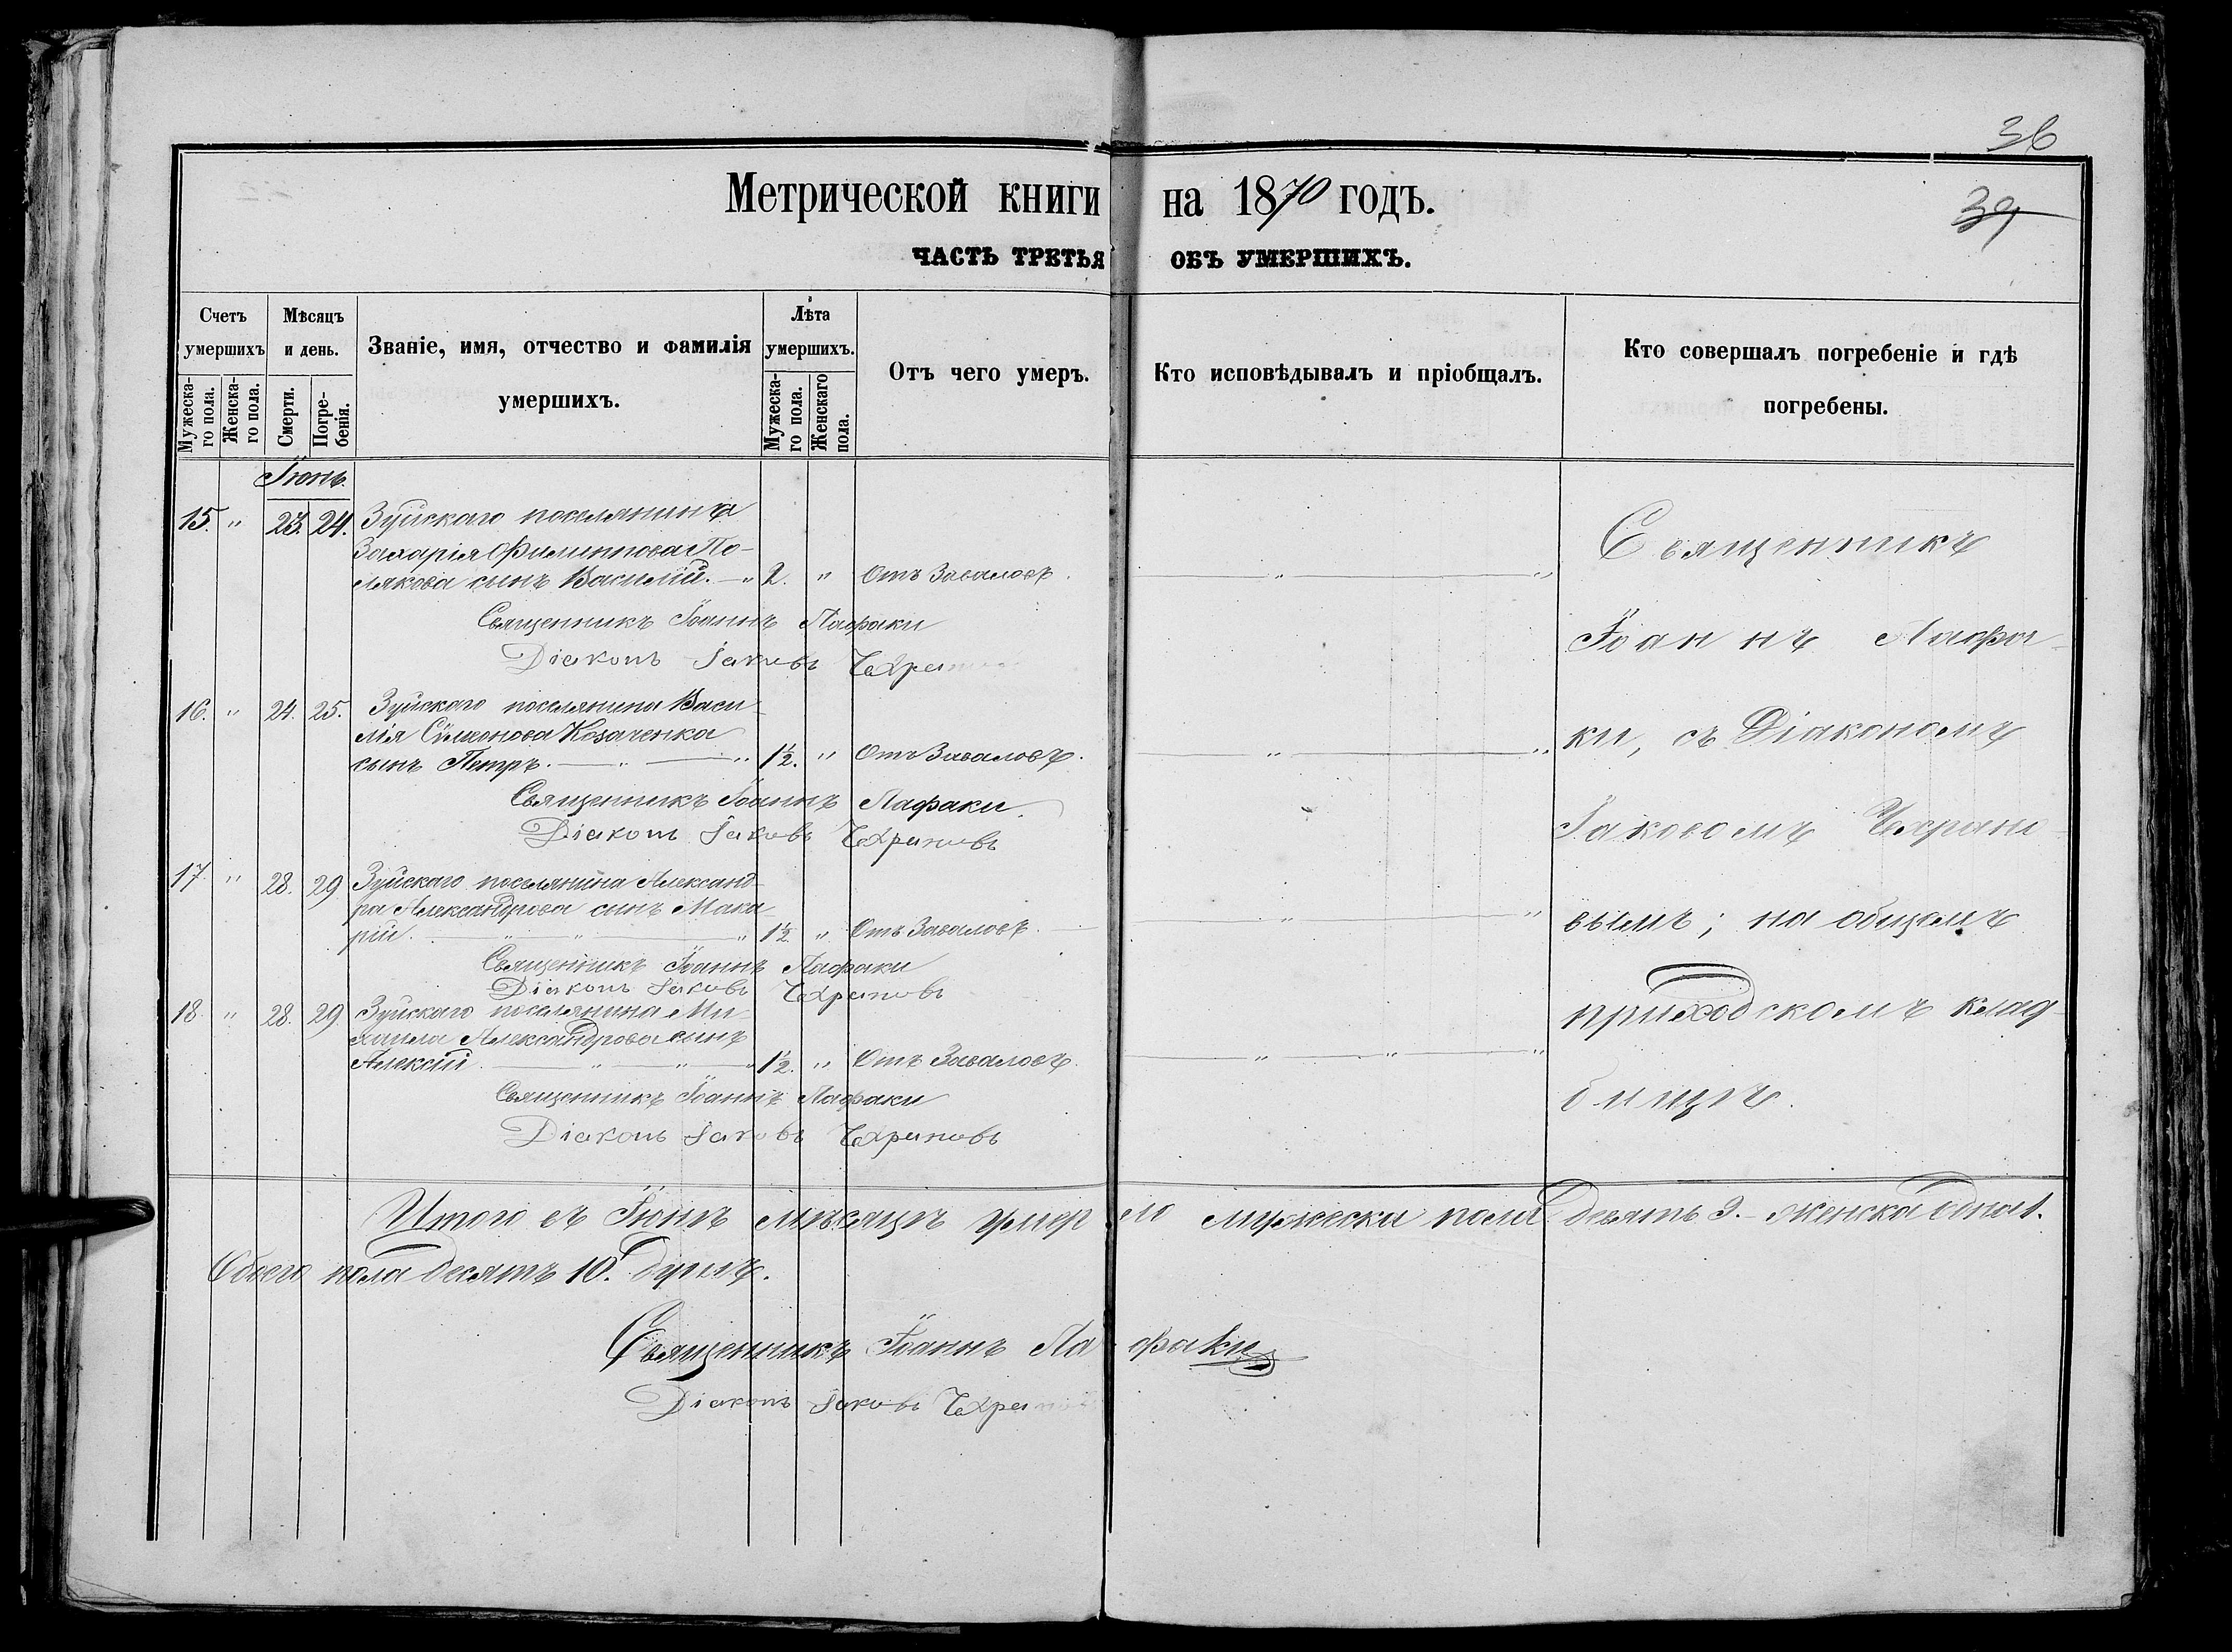 36
Метрической книги на 1870 годъ.
39
ЧАСТЬ ТРЕТЬЯ ОБЪ УМЕРШИХЪ.
Счетъ умершихъ
Мѣсяцъ и день.
Званіе, имя, отчество и фамилія умершихъ.
Лѣта умершихъ.
Отъ чего умеръ.
Кто исповѣдывалъ и пріобщалъ.
Кто совершалъ погребеніе и гдѣ погребены.
Мужеска-го пола.
Женска-го пола.
Смерти.
Погре-бенія.
Мужеска-го пола.
Женскаго пола.
Іюнь.
15. " 23. 24. Зуйскаго поселянина
Захарія Филиппова По-
лякова сынъ Василій. — " 2. " Отъ Заваловъ.
Священникъ Іоаннъ Лафаки
Діаконъ Іаковъ
16. " 24. 25. Зуйскаго поселянина Васи-
лія Сѵмеонова Козаченка
сынъ Петръ. — " — " 1½. " Отъ Заваловъ.
Священникъ Іоаннъ Лафаки.
Діаконъ Іаковъ Чехрановъ
17. " 28. 29. Зуйскаго поселянина Александ-
ра Александрова сынъ Мака-
рій. — " — " 1½. " Отъ Заваловъ.
Священникъ Іоаннъ Лафаки
Діаконъ Іаковъ Чехрановъ
18. " 28. 29. Зуйскаго поселянина Ми-
хаила Александрова сынъ
Алексій. — " — " — " 1½. " Отъ Заваловъ.
Священникъ Іоаннъ Лафаки
Діаконъ Іаковъ Чехрановъ
Священникъ
Іоаннъ Лафа-
ки, съ Діакономъ
Іаковомъ Чехрано-
вымъ; на общемъ
приходскомъ клад-
бищѣ.
Итого въ Іюнѣ мѣсяцѣ умерло мужеска пола девять 9. – женска одна 1.
Обоего пола десять 10. душъ.
Священникъ Іоаннъ Лафаки
Діаконъ Іаковъ